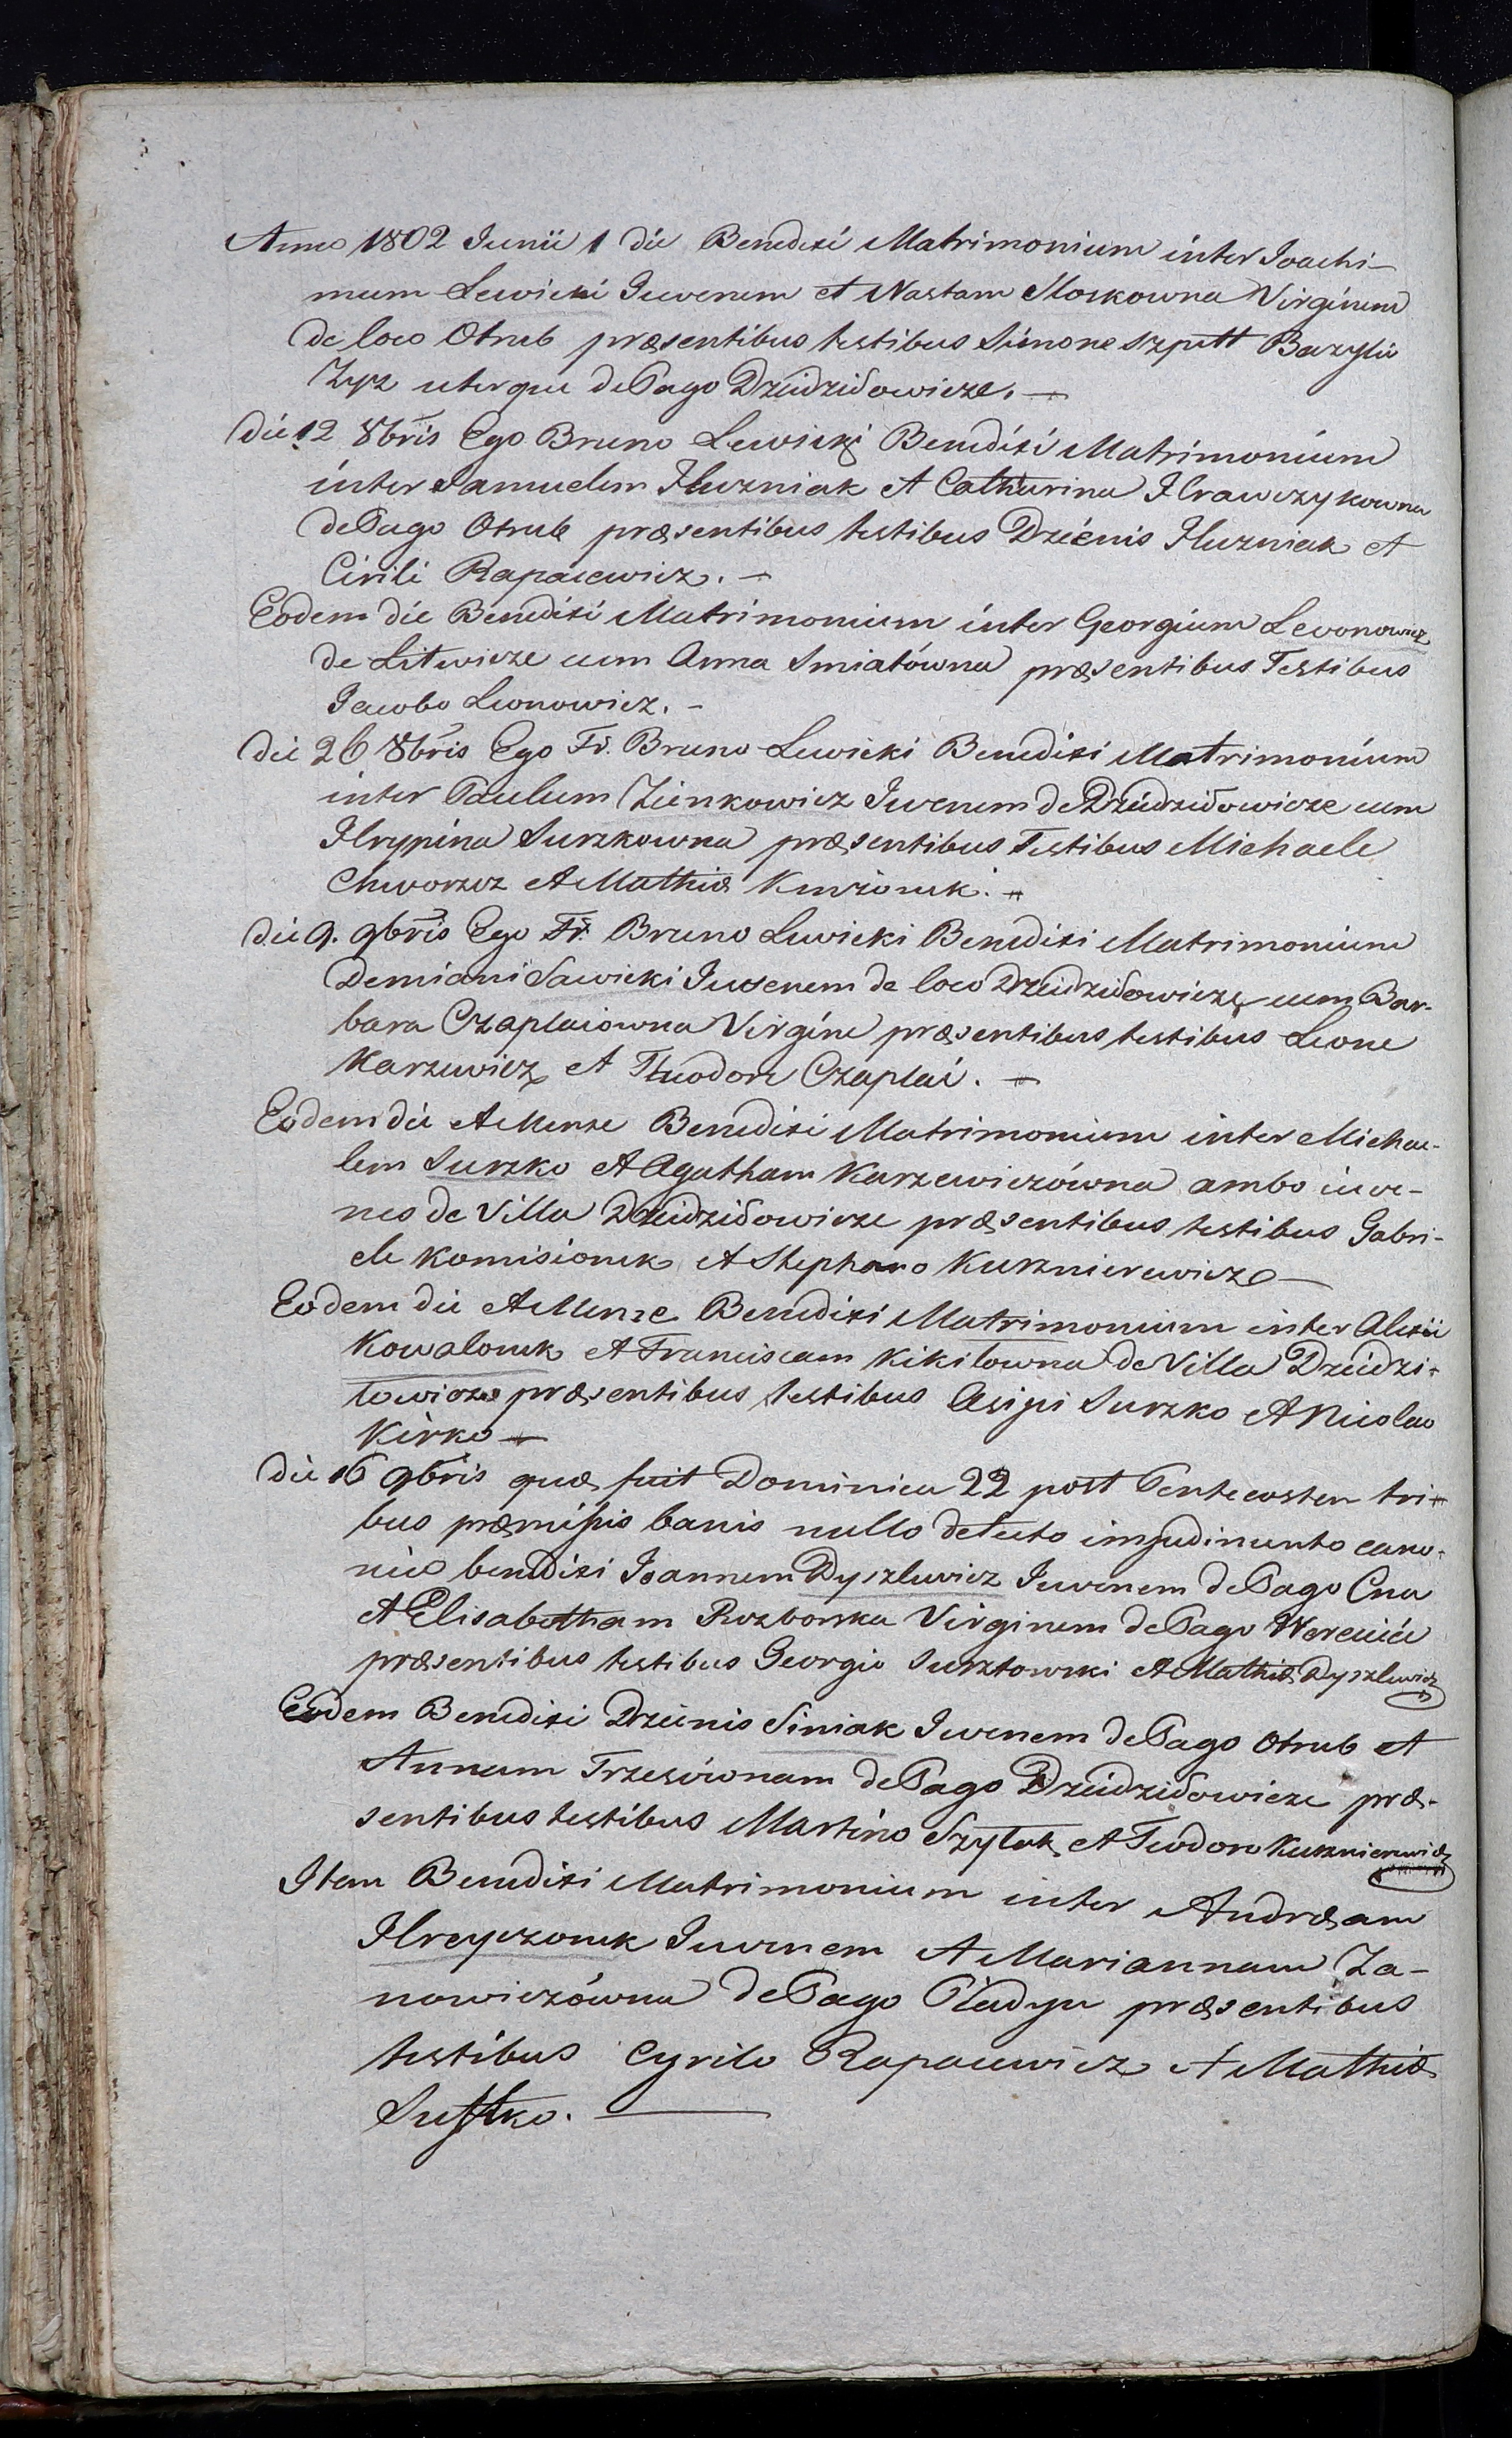 Anno 1802 Junii 1 die Benedixi Matrimonium inter Joachi-
mum Lewicki Juvenem et Nastam Moskowna Virginem
de loco Otrub præsentibus testibus Simone Szputt Bazylii
Zyz uterque de Pago Dziedziłowicze. —
Die 12 8bris Ego Bruno Lewicki Benedixi Matrimonium
inter Samuelem Huzniak et Catharina Hrawczykowna
de Pago Otrub præsentibus testibus Dzienis Huzniak et
Cirili Rapacewicz. —
Eodem die Benedixi Matrimonium inter Georgium Levonowicz
de Litwicze cum Anna Smiatówna præsentibus Testibus
Jacobo Leonowicz. -
Die 26 8bris Ego Fr. Bruno Lewicki Benedixi Matrimonium
inter Paulum Zienkowicz Juvenem de Dziedziłowicze cum
Hrypina Surzkowna præsentibus Testibus Michaele
Chworszcz et Mathia
Die 9. 9bris Ego Fr. Bruno Lewicki Benedixi Matrimonium
Demiani Sawicki Juvenem de loco Dziedziłowicze cum Bar-
bara Czaplaiowna Virgine præsentibus testibus Leone
Karzewicz et Theodore Czaplai. —
Eodem die et Mense Benedixi Matrimonium inter Michae-
lem Surzko et Agatham Karzewiczówna ambo iuve-
nes de Villa Dziedziłowicze præsentibus testibus Gabri-
ele Komisionek et Stephano Kusznierewicze —
Eodem die et Mense Benedixi Matrimonium inter Alexii
Kowalonek et Franciscam Kikiłowna de Villa Dziedzi-
łowicze præsentibus testibus Asipi Surzko et Nicolao
Kirko —
Die 16 9bris quæ fuit Dominica 22 post Pentecosten tri-
bus præmissis banis nullo detecto impedimento cano-
nico benedixi Joannem Dyszlewicz Juvenem de Pago Cna
et Elisabetham Rozborska Virginem de Pago
præsentibus testibus Georgio Surztowski et Mathia Dyszlewicz
Eodem Benedixi Dzienis Siniak Juvenem de Pago Otrub et
Annam Trzesównam de Pago Dziedziłowicze præ-
sentibus testibus Martino Szyluk et Teodoro Kusznierewicz
Item Benedixi Matrimonium inter Andræam
Hreyczonek Juvenem et Mariannam Za-
nowiczówna de Pago Pladyn præsentibus
testibus Cyrilo Rapacewicz et Mathia
Susztko. —